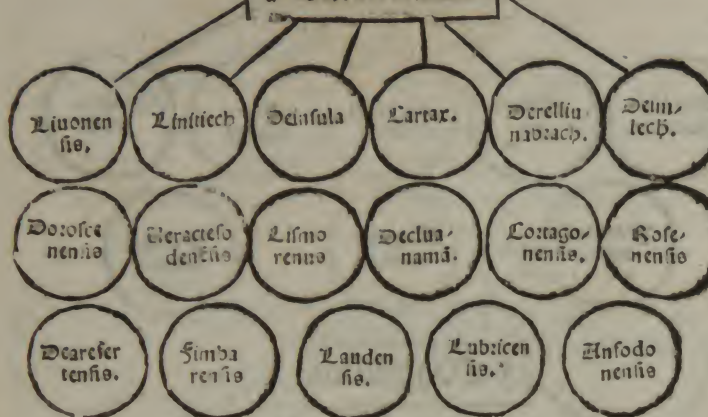 Liuonen
sis.
Linitiech
Deinsula
Cartax.
Derelliu
nabrach.
Deim⸗
lech.
Dorosce
nensis
Lismo
renus
Declua⸗
namā.
Cortago⸗
nensis.
Rose⸗
nensis
Dearefer
tensis.
Fimba
rensis
Lauden
sis.
Lubricen
sis.
Ansodo
nensis